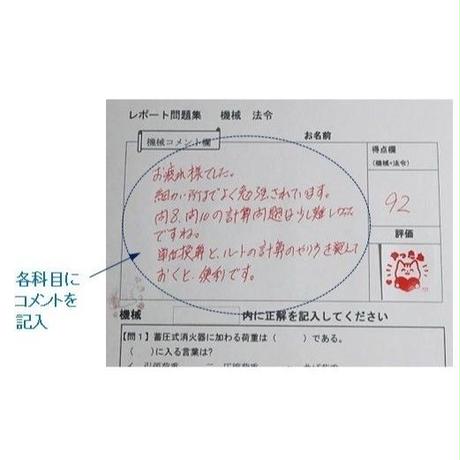 レポート問題集　機械　法令
機械コメント欄
お名前
得点欄
(機械・法令)
お疲れ様でした。
細かい所までよく勉強されています。
問8、問10の計算問題は少し難しかった
ですね。
単位換算と、ルートの計算のやり方を覚えて
おくと、便利です。
92
評価
やったね
各科目に
コメントを
記入
機械
内に正解を記入してください
【問1】蓄圧式消火器に加わる荷重は（　　）である。
（　　）に入る言葉は？